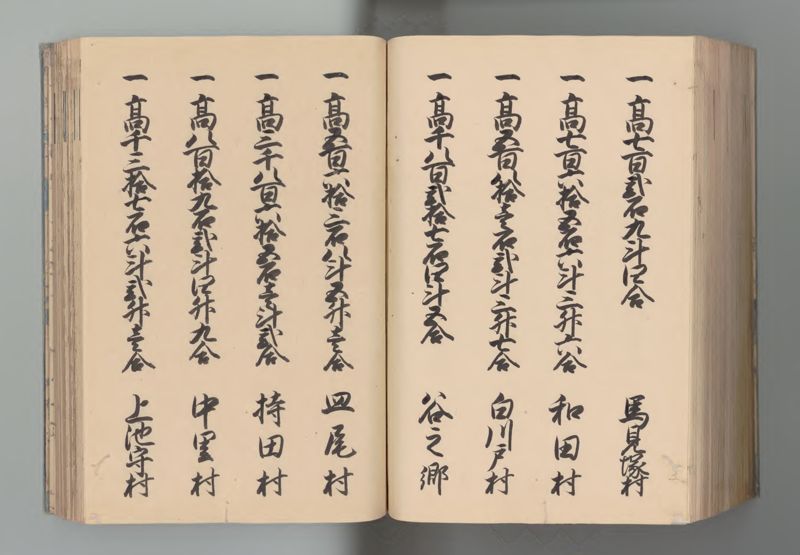 一 高七百弐石九斗四合 馬見塚村
一 高七百六拾五石六斗三升六合 和田村
一 高五百八拾壱石弐斗三升七合 白川戸村
一 高千八百弐拾七石四斗五合 谷之郷
一 高五百六拾二石八斗五升壱合 皿尾村
一 高二千八百六拾五石壱斗弐合 持田村
一 高八百拾九石弐斗四升九合 中里村
一 高千三拾七石六斗弐升壱合 上池守村